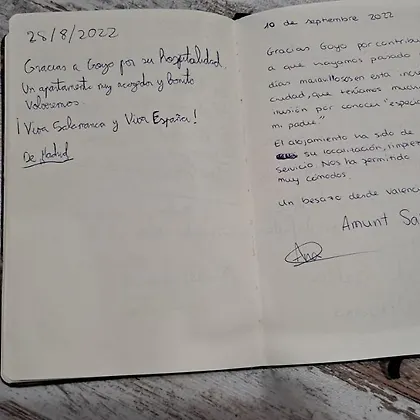 28/8/2022
Gracias a Goyo por su Hospitalidad.
Un apartamento muy acogedor y bonito
Volveremos.
¡Viva Salamanca y Viva España!
De Madrid
10 de septiembre 2022
Gracias Goyo por contribu
a que hayamos pasado
días maravillosos en esta incre
ciudad, que teníamos mucha
ilusión por conocer "espec
mi padre."
El alojamiento ha sido de
su localización, limpieza
servicio. Nos ha permitido
muy cómodos.
Un besazo desde Valenc
Amunt Sa
Ana